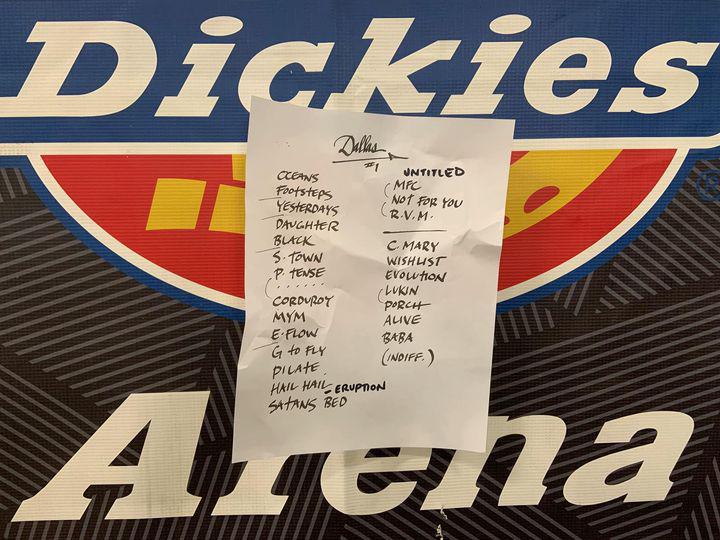 Dickies
Dallas
#1
OCEANS
FOOTSTEPS
YESTERDAYS
DAUGHTER
BLACK
S. TOWN
P. TENSE
(......
CORDUROY
MYM
E. FLOW
G to FLY
PILATE.
HAIL HAIL - ERUPTION
SATANS BED
UNTITLED
MFC
NOT FOR YOU
R.V.M.
C. MARY
WISHLIST
EVOLUTION
LUKIN
PORCH
ALIVE
BABA
(INDIFF.)
Arena